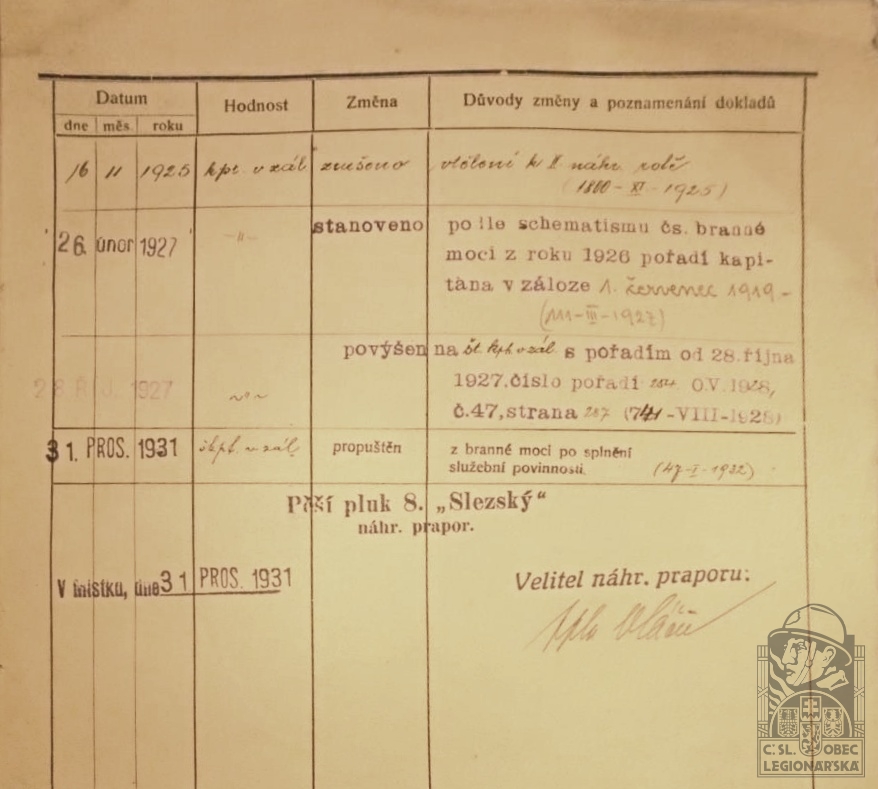 Datum Hodnost Změna Důvody změny a poznamenání dokladů
dne měs. roku
16 11 1925 kpt. v zál. zrušeno vtělení k II náhr. rotě
(1800-XI-1925)
26. únor 1927 -"- stanoveno podle schematismu čs. branné
moci z roku 1926 pořadí kapi-
tána v záloze 1. červenec 1919-
(111-III-1927)
povýšen na št. kpt. v zál. s pořadím od 28. října
28. ŘÍJ. 1927 1927, číslo pořadí 284 O.V. 1928,
č.47, strana 287 (741-VIII-1928)
31. PROS. 1931 škpt. v zál. propuštěn z branné moci po splnění
služební povinnosti. (47-I-1932)
Pěší pluk 8. „Slezský"
náhr. prapor.
V Místku, dne 31 PROS. 1931
Velitel náhr. praporu:
Č.SL. OBEC
LEGIONÁŘSKÁ